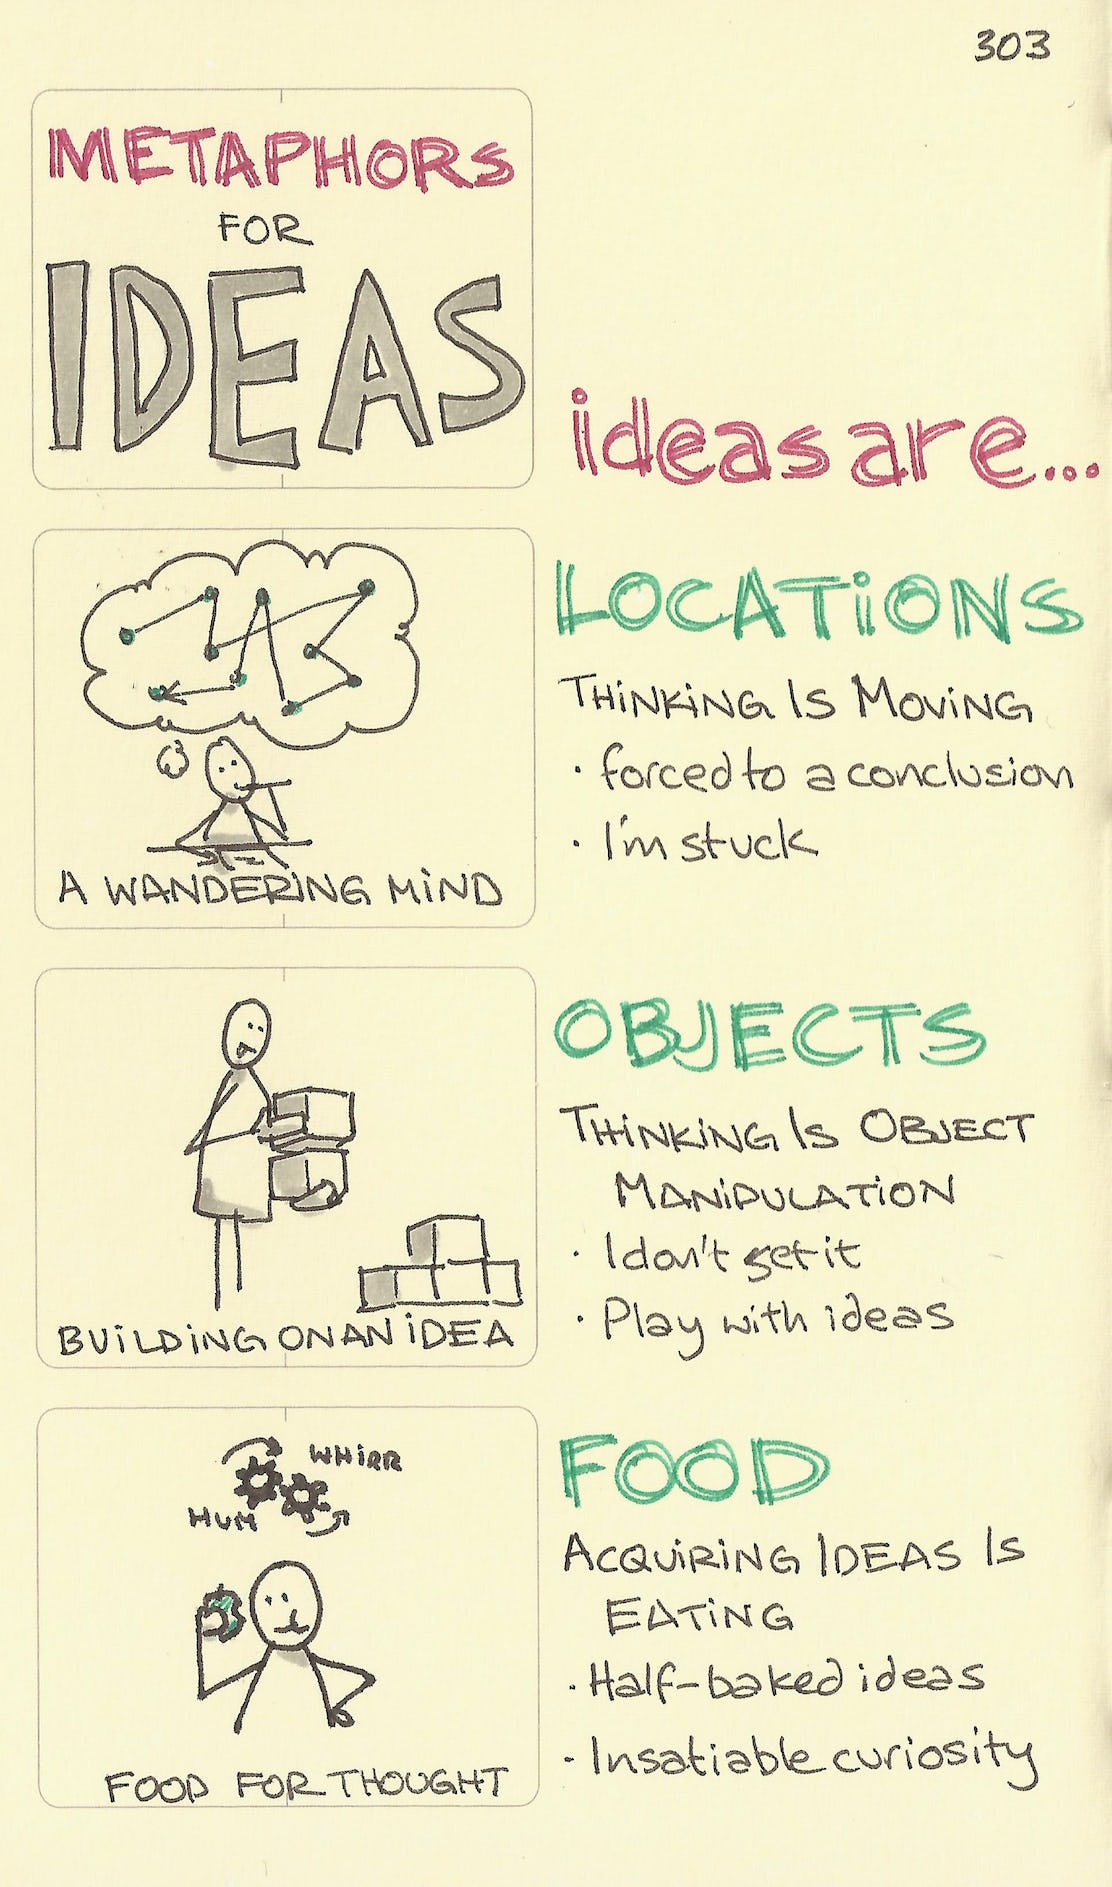 303
METAPHORS
FOR
IDEAS
ideas are...
A WANDERING MIND
LOCATIONS
THINKING IS MOVING
· forced to a conclusion
· I'm stuck
BUILDING ON AN IDEA
OBJECTS
THINKING IS OBJECT
MANIPULATION
· I don't get it
· Play with ideas
WHIRR
HUM
FOOD FOR THOUGHT
FOOD
ACQUIRING IDEAS IS
EATING
· Half-baked ideas
· Insatiable curiosity